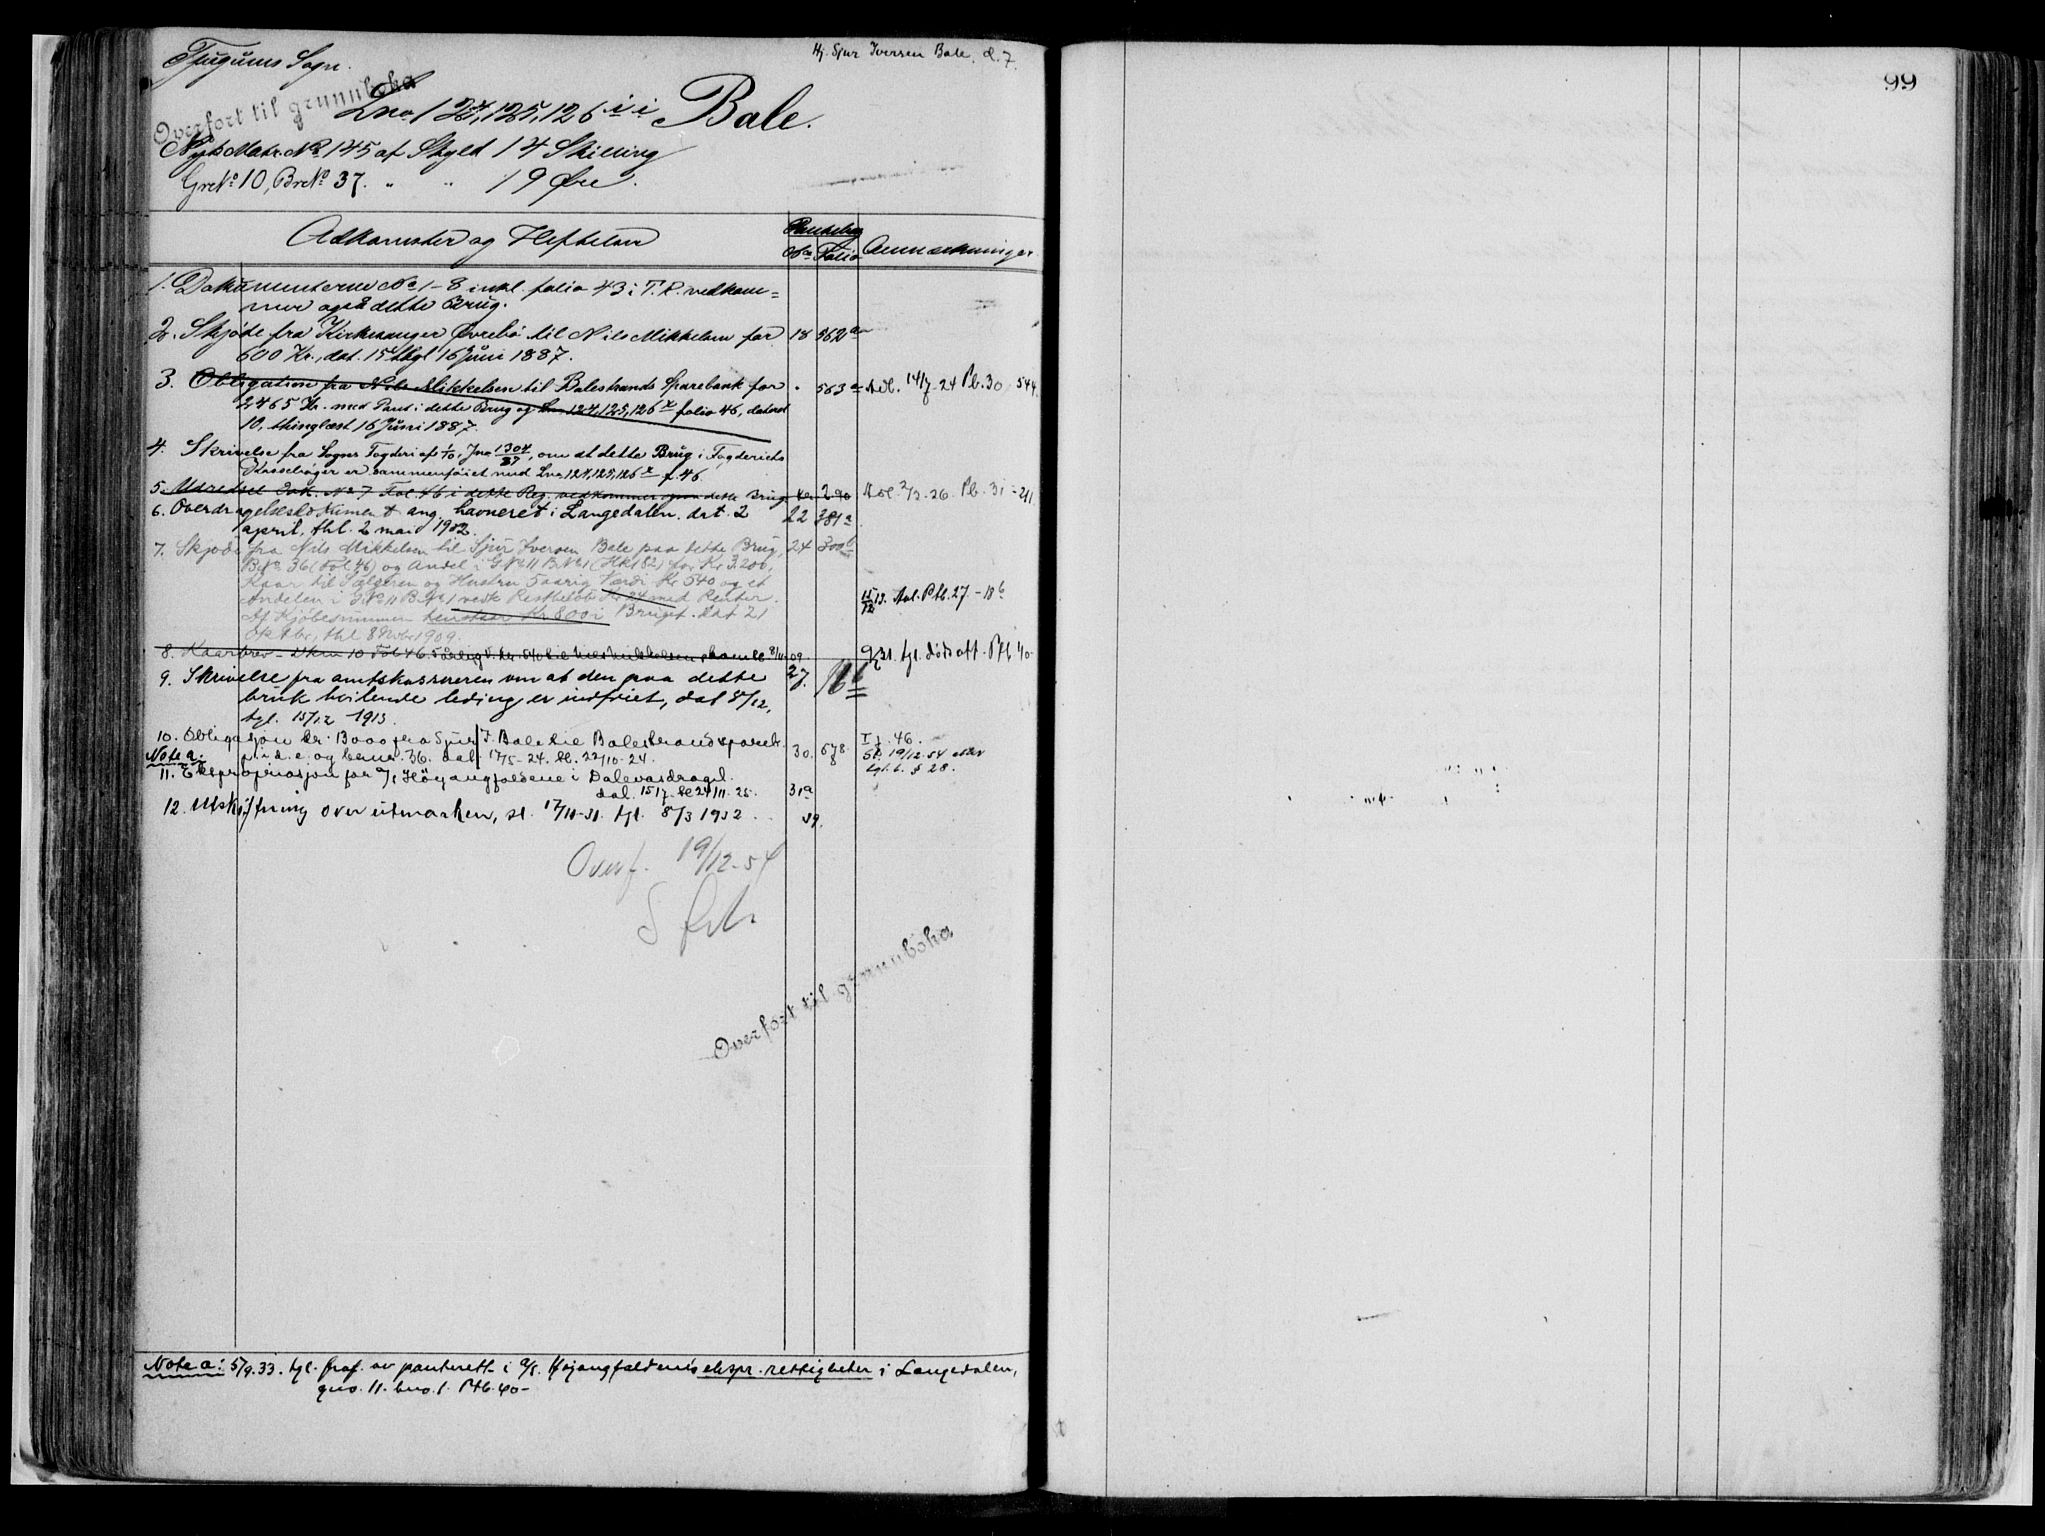 Tjugums Sogn.
Hj. Sjur Iversen Bale. d. 7.
Overført til grunnboka
Lno 124, 125, 126 i i Bale.
Nyt Matr. No 145 af Skyld 14 Skilling
Grno 10, Brno 37. " " 19 Øre.
Adkomster og Heftelser
Pantebog
No Folio
Anmærkninger
1. Dokumenterne No 1-8 inkl. folio 43 i T. R. vedkom=
mer også dette Brug.
2. Skjøde fra Kirkesanger Øvrebø til Nils Mikkelsen for 18 562a
600 Kr., dat. 15 thgl 16 Juni 1887.
3. Obligation fra Nils Mikkelsen til Balestrands Sparebank for " 563a Avl. 14/7-24 Pb. 30 544.
2,465 Kr. med Pant i dette Brug og Lno 124, 125, 126 folio 46, dateret
10, thinglæst 16 Juni 1887.
4. Skrivelse fra Sogns Fogderi af 1/10, Jno 1304/87, om at dette Brug i Fogderiets
Kassebøger er sammenføiet med Lno 124, 125, 126 f. 46.
5. Udredsel Dok. No 7 Fol. 46 i dette Reg. vedkommer ogsaa dette Brug Avl. 2/3-26. Pb. 31-211
6. Overdragelsesdokument ang. havneret i Langedalen. dat. 2 22 381a
april, thl. 2 mai 1902.
7. Skjøde fra Nils Mikkelsen til Sjur Iversen Bale paa dette Brug, 24 300b
BNo 36 (Fol 46) og Andel i GNo 11 BNo 1 (Hk 182) for Kr 3200,
Kaar til Sælgeren og Hustru 5 aarig Værdi Kr 540 og et
Andelen i GNo 11 BNo 1 vedk Restkeløb Kr 34 med Renter.
Af Kjøbesummen henstaar Kr 800 i Bruget. Dat 21
Oktbr, thl 8 Novbr 1909.
15/12 13. Avl. Ptb. 27 - 116
8. Kaarbrev - Dkm 10 Fol 46. 5 aarlig V. kr. 540 til Nils Mikkelsen, 8/11 09
31. tgl. dødsatt. Ptb 40-
9. Skrivelse fra amtskassereren om at den paa dette 27. 116
bruk hvilende leding er indfriet, dat 8/12,
tgl. 15/12 1913.
10. Obligasjon kr. 8000 fra Sjur I. Bale til Balestrand spareb. 30. 678
Note a. p. i d. e. og bno. 36. dat. 17/5-24. tl. 22/10-24.
I f. 46.
Sl. 19/12-54
tgl. l. § 28.
11. Ekspropriasjon for a/s Høyangfaldene i Dalevasdraget.
dat. 15/7. tl 24/11-25. 31a
12. Utskiftning over utmarken, sl. 17/11-31. tgl. 8/3 1932. 39.
Overf. 19/12-54
Overført til grunnboka
Note a: 5/9.33. tgl. fraf. av panterett i a/s. Højangfaldenes ekspr. rettigheter i Langedalen,
gno. 11. bno. 1. Ptb. 40-
99